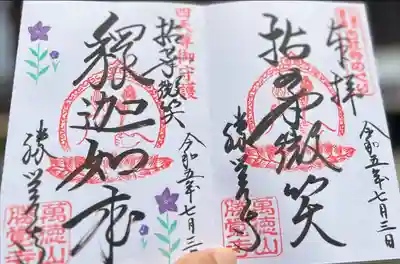 奉拝
拈華微笑
勝覚寺
令和五年七月三日
萬徳山
勝覚寺
四天尊御守護
拈華微笑
釋迦如来
勝覚寺
令和五年七月三日
萬徳山
勝覚寺